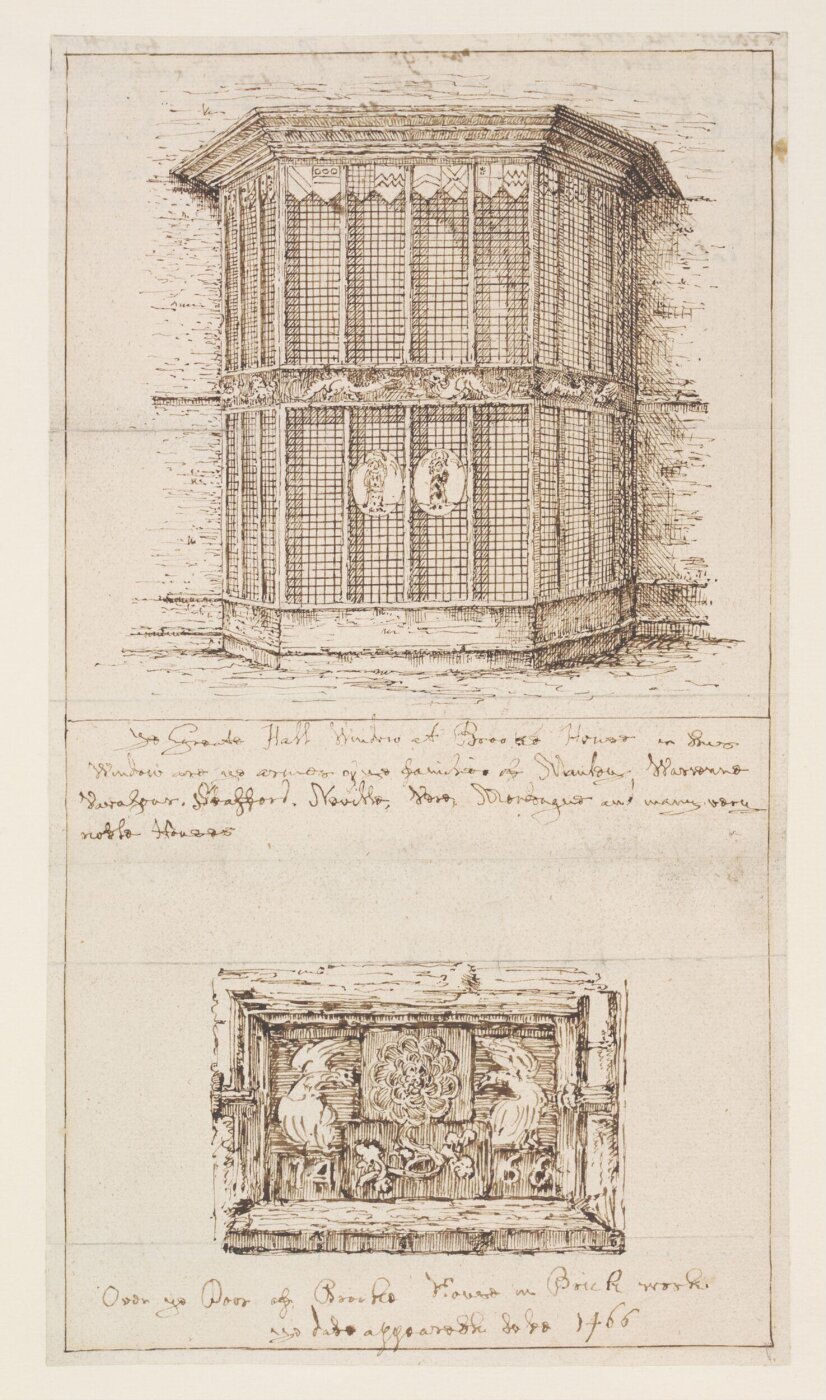 ye Greate Hall Window at Brooke House in this
Window are ye armes of ye families of Manley, Warrenne
Stafford, Neville, Vere, Montague and many very
noble Houses
14 66
Over ye Door of Brooke House in Brick work
ye date appeareth to be 1466